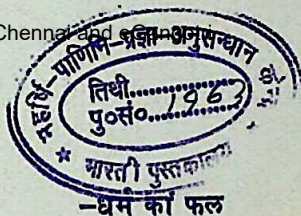 Chennai and eGangotri
महर्षि-पाणिनि-प्रज्ञा-अनुसन्धान
तिथी..............
पु०सं०... 1963
* भारती पुस्तकालय *
-धर्म का फल